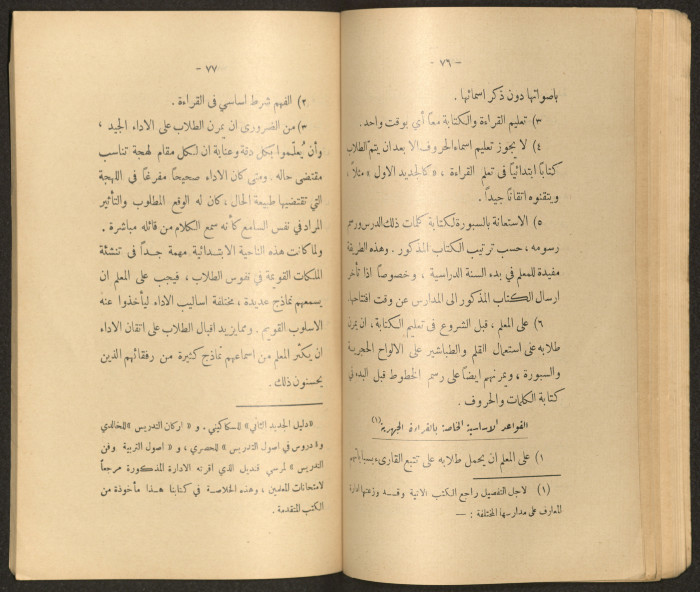 – ٧٦ –
بأصواتها دون ذكر اسمائها .
٣) تعليم القراءة والكتابة معاً أي بوقت واحد.
٤) لا يجوز تعليم اسماء الحروف الا بعد ان يتم الطلاب
كتاباً ابتدائياً في تعلم القراءة ، «كالجديد الاول» مثلاً ،
ويتقنوه اتقاناً جيداً .
٥) الاستعانة بالسبورة لكتابة كلمات ذلك الدرس ورسم
رسومه ، حسب ترتيب الكتاب المذكور . وهذه الطريقة
مفيدة للمعلم في بدء السنة الدراسية ، وخصوصاً اذا تأخر
ارسال الكتاب المذكور الى المدارس عن وقت افتتاحها.
٦) على المعلم ، قبل الشروع في تعليم الكتابة ، ان يمرن
طلابه على استعمال القلم والطباشير على الالواح الحجرية
والسبورة ، ويمرنهم ايضاً على رسم الخطوط قبل البدء في
كتابة الكلمات والحروف .
القواعد الاساسية الخاصة بالقراءة الجهرية (١)
١) على المعلم ان يحمل طلابه على تتبع القارىء بسباباتهم
(١) لاجل التفصيل راجع الكتب الاتية وقد وزعتها ادارة
المعارف على مدارسها المختلفة : —
– ٧٧ –
٢) الفهم شرط اساسي في القراءة .
٣) من الضروري ان يمرن الطلاب على الاداء الجيد ،
وأن يُعلّموا بكل دقة وعناية ان لكل مقام لهجة تناسب
مقتضى حاله . ومتى كان الاداء صحيحاً مفرغاً في اللهجة
التي تقتضيها طبيعة الحال ، كان له الوقع المطلوب والتأثير
المراد في نفس السامع كأنه سمع الكلام من قائله مباشرة .
ولما كانت هذه الناحية الابتدائية مهمة جداً في تنشئة
الملكات القويمة في نفوس الطلاب ، فيجب على المعلم ان
يسمعهم نماذج عديدة ، مختلفة اساليب الاداء ليأخذوا عنه
الاسلوب القويم . ومما يزيد اقبال الطلاب على اتقان الاداء
ان يكثر المعلم من اسماعهم نماذج كثيرة من رفقائهم الذين
يحسنون ذلك .
«دليل الجديد الثاني» للسكاكيني . و « اركان التدريس » للخالدي
و« دروس في اصول التدريس » للحصري ، و « اصول التربية وفن
التدريس » لمرسي قنديل الذي اقرته الادارة المذكورة مرجعاً
لامتحانات المعلمين ، وهذه الخلاصة في كتابنا هذا مأخوذة من
الكتب المتقدمة .